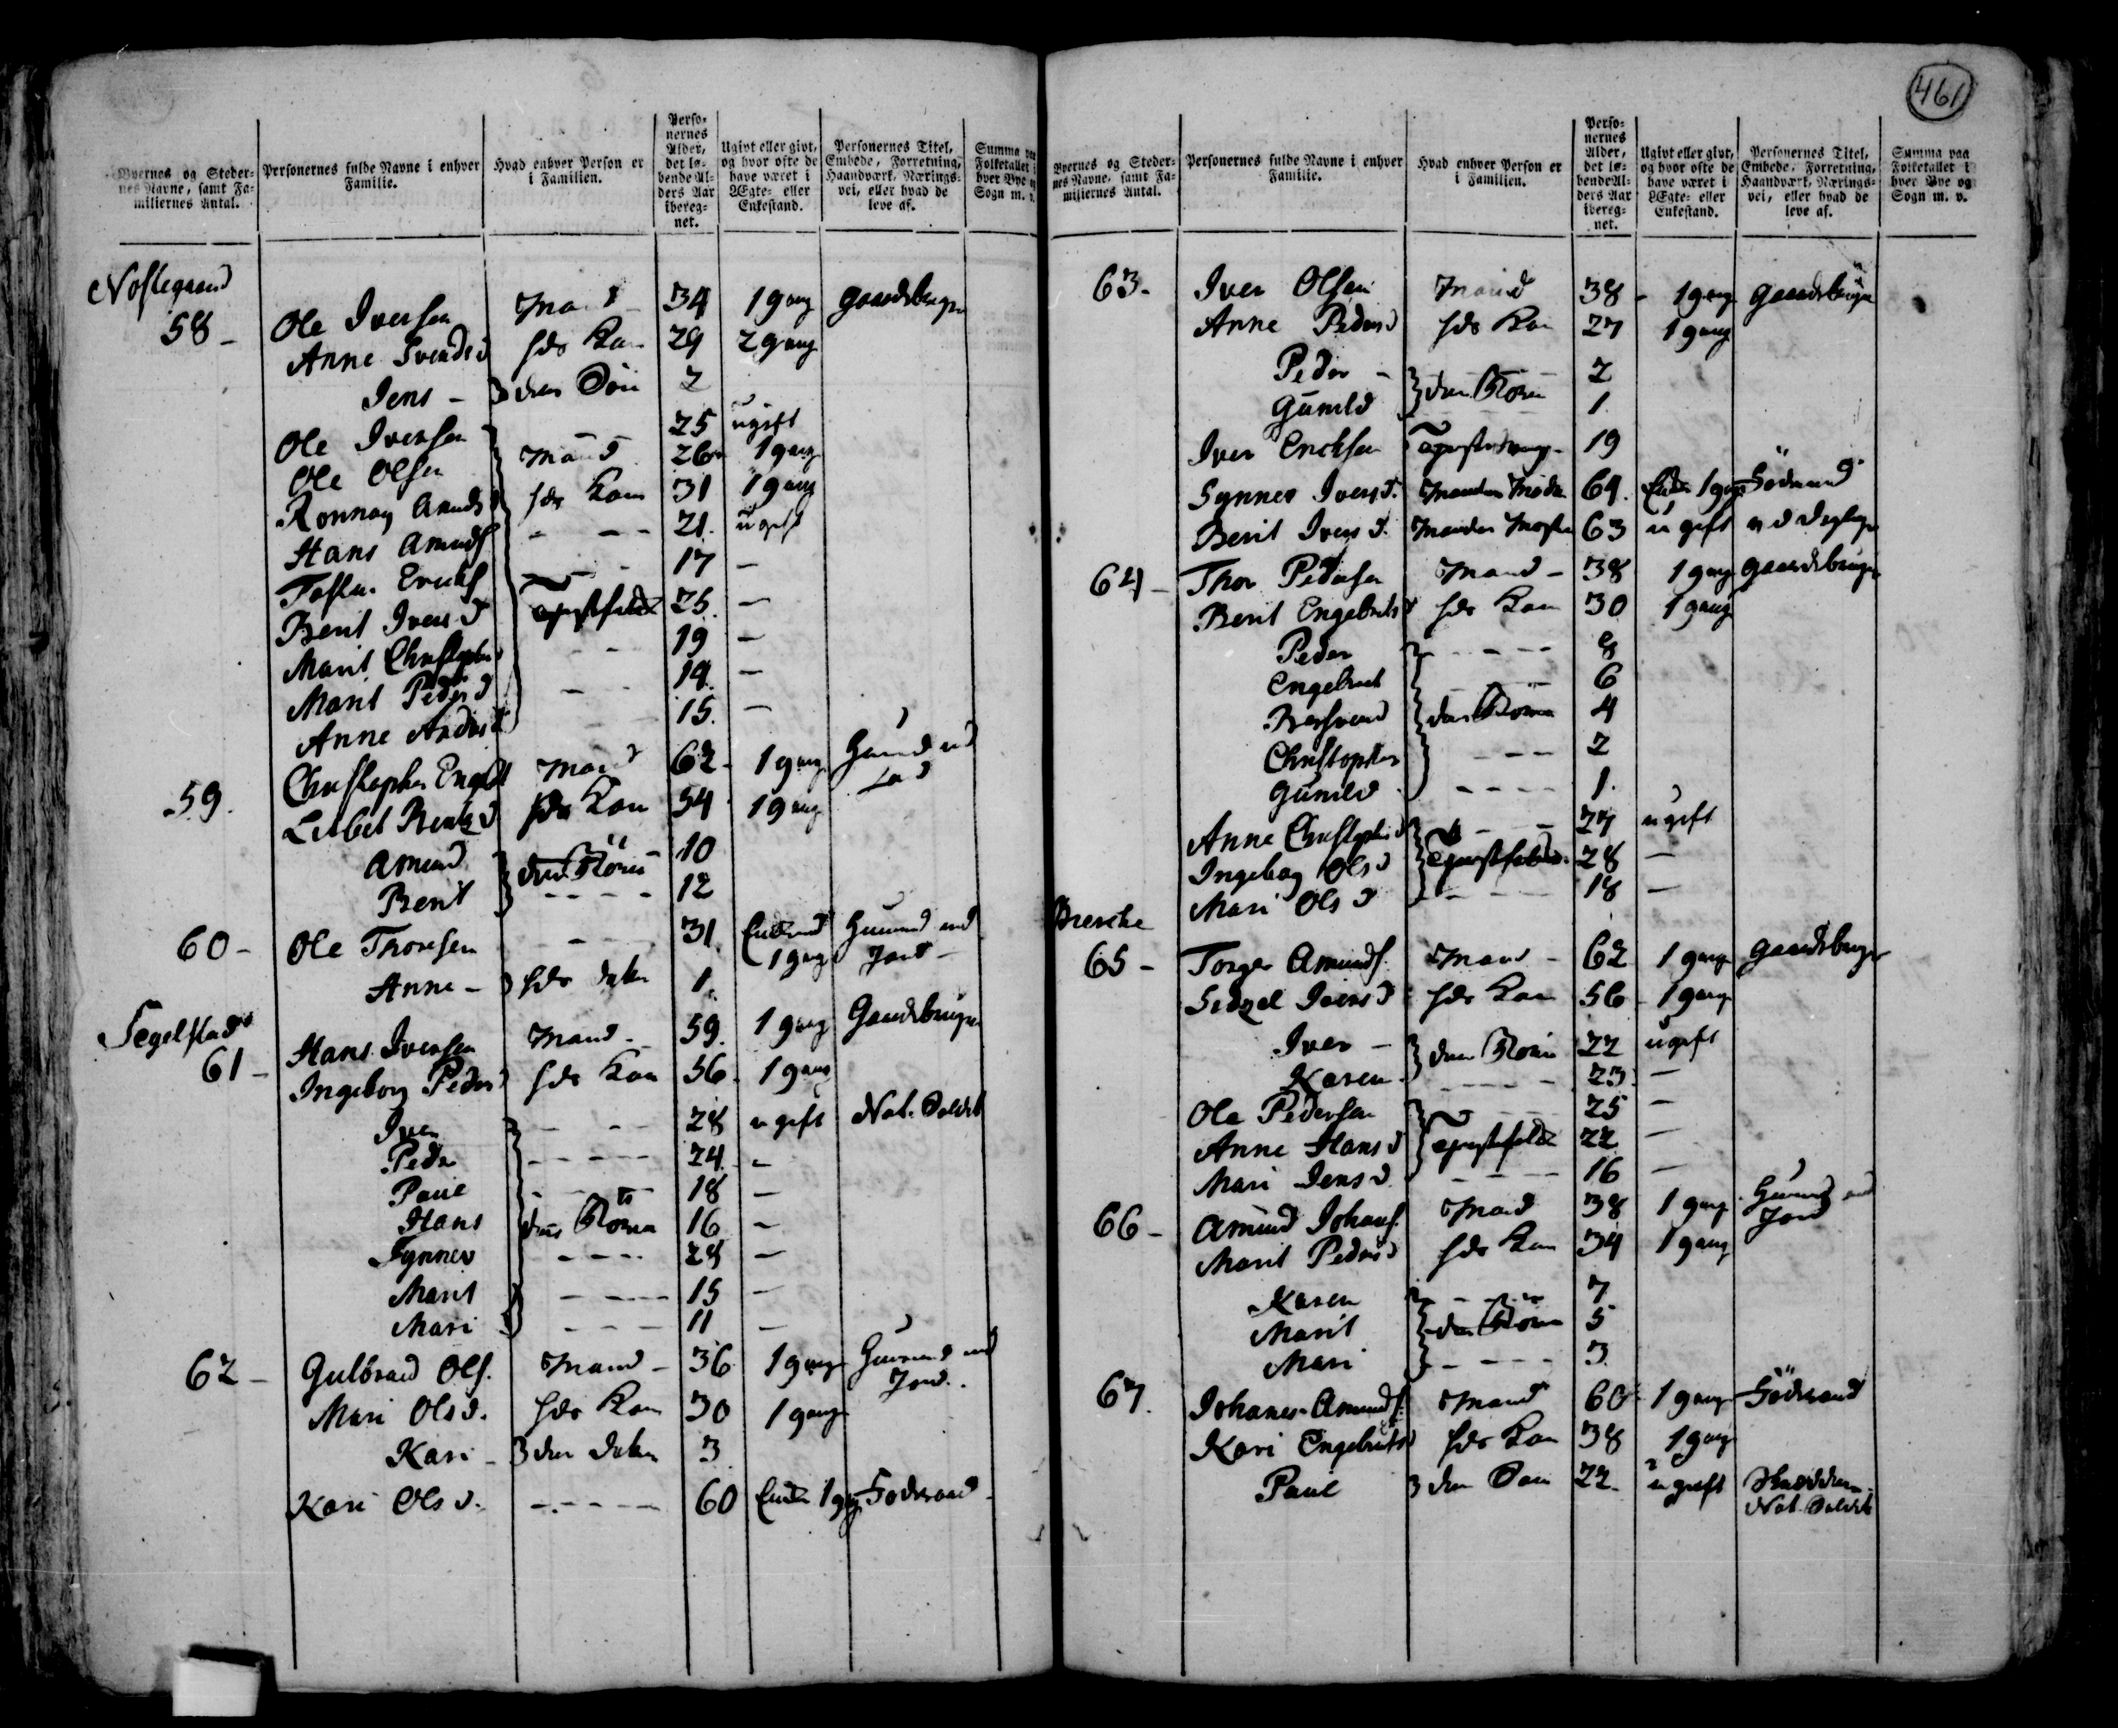 461
Byernes og Steder-
nes Navne, samt Fa-
miliernes Antal.
Personernes fulde Navne i enhver
Familie.
Hvad enhver Person er
i Familien.
Perso-
nernes
Alder,
det lø-
bende Al-
ders Aar
ibereg-
net.
Ugivt eller givt,
og hvor ofte de
have været i
Ægte- eller
Enkestand.
Personernes Titel,
Embede, Forretning,
Haandværk, Nærings-
vei, eller hvad de
leve af.
Summa paa
Folketallet i
hver Bye og
Sogn m. v.
58 - Ole Iversen Mand 34 1 gang Gaardbruger
Anne Svends d hds Kone 29 2 gang
Jens - den Søn 2
Ole Iversen 25 ugift
Ole Olsen Mand 26 1 gang
Ronnøg Amnds d hds Kone 31 1 gang
Hans Amunds - - - 21. ugift
Ericks - - - 17 -
Berit Ivers d Tjenestefolk 25. -
Marit Christophers - - 19 -
Marit Peders d - - 19. -
Anne Anders d - - 15. -
59. Christopher Mand 62 - 1 gang Huusmand med
Jord
Lisbet hds Kone 54 1 gang
Amund 10
Berit - - - - 12
60 - Ole Thoresen - - - 31. Enkemand Huusmand med
1 gang Jord -
Anne - hds datter 1.
Segelstad
61 - Hans Iversen Mand - 59. 1 gang Gaardbruger
Ingeborg Peders d hds Kone 56 1 gang
Iver - - - 28 ugift Nat. Soldat
Peder - - - - - 24. -
Paul 18 -
Hans Børn 16 -
Synnev - - - - 28 -
Marit - - - - 15 -
Mari - - - 11 -
62 - Gulbrand Ols. Mand - 36 1 gang Huusmand med
Jord.
Mari Ols d. hds Kone 30 1 gang
Kari - datter 3
Kari Ols d. - - - - - 60 Enke 1 gang Føderaad -
Byernes og Steder-
nes Navne, samt Fa-
miliernes Antal.
Personernes fulde Navne i enhver
Familie.
Hvad enhver Person er
i Familien.
Perso-
nernes
Alder,
det lø-
bende Al-
ders Aar
ibereg-
net.
Ugivt eller givt,
og hvor ofte de
have været i
Ægte- eller
Enkestand.
Personernes Titel,
Embede, Forretning,
Haandværk, Nærings-
vei, eller hvad de
leve af.
Summa paa
Folketallet i
hver Bye og
Sogn m. v.
63 - Iver Olsen Mand 38 - 1 gang Gaardbruger
Anne Peders d hds Kone 27 1 gang
Peder - 2
Gunild Børn 1.
Iver Ericksen 19
Synnev Ivers d. Mandens Moder 64. Enke 1 gang Føderaad
Berit Ivers d. Mandens 63 ugift
64 - Thor Pedersen Mand - 38 1 gang Gaardbruger
Berit Engebrets d hds Kone 30 1 gang
Peder - - - - 8
Engebret - - - 6
Børn 4
Christopher - - - 2
Gunild - - - - 1.
Anne Christophers d - - 27 ugift
Ingeborg Ols d Tjenestefolk 28 -
Mari Ols d - - - - 18 -
65 - Torger Amunds. Mand - 62 1 gang Gaardbruger
Sidzel Ivers d hds Kone 56 - 1 gang
Iver - Børn 22 ugift
Karen - - - - - 23. -
Ole Pedersen - - 25 -
Anne Hans d Tjenestefolk 22 -
Mari Jens d - - - - 16 -
66 - Amund Johans. Mand 38 1 gang Huusmand med
Jord
Marit Peders d hds Kone 34 1 gang
Karen - - - 7
Marit Børn 5
Mari - - - - 3
67. Johanes Amunds. Mand 60 1 gang Føderaad
Kari Engebrets d hds Kone 38 1 gang
Paul den Søn 22. ugift
Nat. Soldat